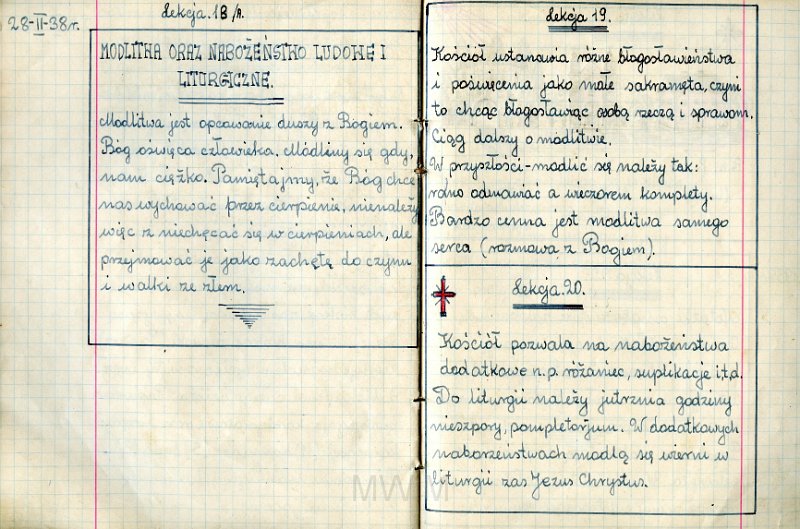 28-II-38r.
Lekcja. 18/A.
MODLITWA ORAZ NABOŻEŃSTWO LUDOWE I
LITURGICZNE.
Modlitwa jest opcowanie duszy z Bogiem.
Bóg oświęca człowieka. Módlimy się gdy,
nam ciężko. Pamiętajmy, że Bóg chce
nas wychować przez cierpienie, nienależy
więc z niechęcać się w cierpieniach, ale
przejmować je jako zachętę do czynu
i walki ze złem.
Lekcja 19.
Kościół ustanawia różne błogosławieństwa
i poświęcenia jako małe sakramęta, czyni
to chcąc błogosławiąc osobą rzeczą i sprawom.
Ciąg dalszy o modlitwie.
W przyszłości-modlić się należy tak:
rdno odmawiać a wieczorem komplety.
Bardzo cenna jest modlitwa samego
serca (rozmowa z Bogiem).
Lekcja. 20.
Kościół pozwala na nabożeństwa
dodatkowe n.p. różaniec, suplikacje i.t.d.
Do liturgii należy jutrznia godziny
nieszpory, pompletorjum. W dodatkowych
naborzeństwach modlą się wierni w
liturgii zas Jezus Chrystus.
MWM